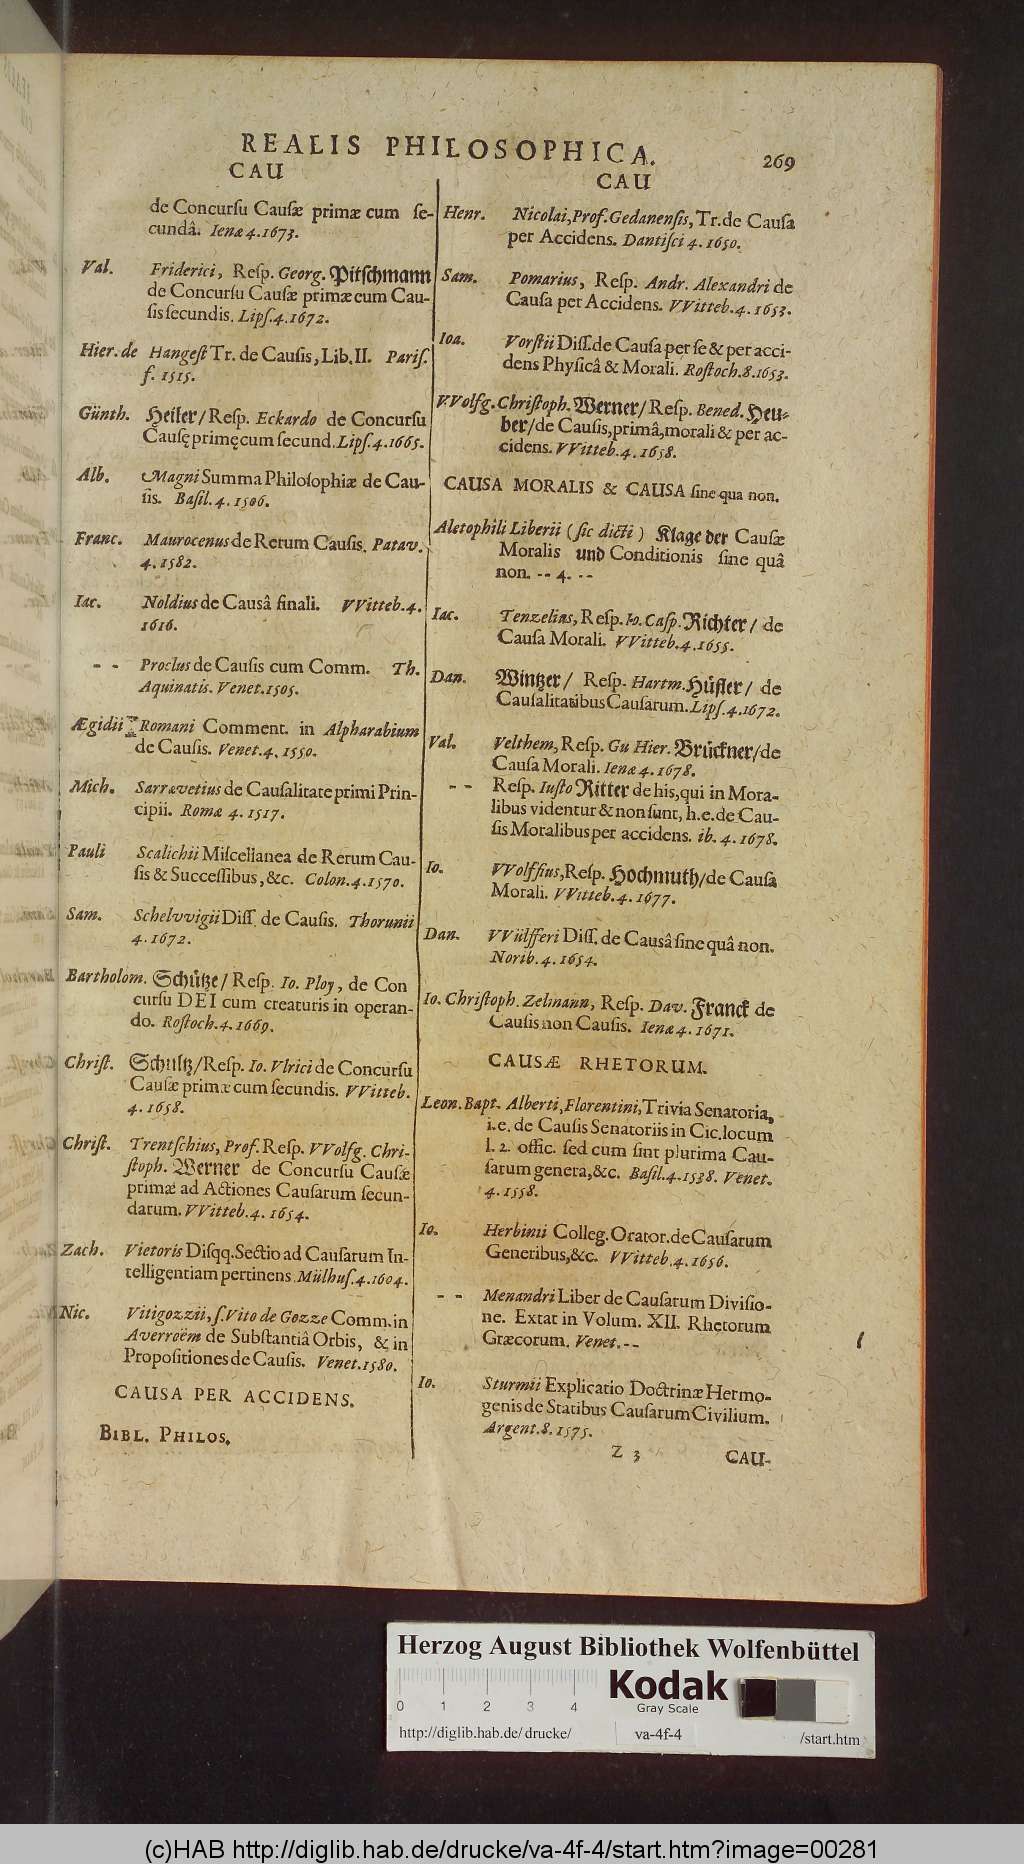 REALIS PHILOSOPHICA.
269
CAU
de Concurſu Cauſæ primæ cum ſe-
cundâ. Ienæ 4.1673.
Val. Friderici, Reſp. Georg. Pitſchmann
de Concurſu Cauſæ primæ cum Cau-
ſis ſecundis. Lipſ.4.1672.
Hier. de Hangeſt Tr. de Cauſis, Lib. II. Pariſ.
f. 1515.
Günth. Heiler/ Reſp. Eckardo de Concurſu
Cauſę primę cum ſecund. Lipſ.4.1665.
Alb. Magni Summa Philoſophiæ de Cau-
ſis. Baſil. 4. 1506.
Franc. Maurocenus de Rerum Cauſis. Patav.
4.1582.
Iac. Noldius de Causâ finali. VVitteb.4.
1616.
-- Proclus de Cauſis cum Comm. Th.
Aquinatis. Venet.1505.
Ægidii Romani Comment. in Alpharabium
de Cauſis. Venet.4.1550.
Mich. Sarravetius de Cauſalitate primi Prin-
cipii. Romæ 4.1517.
Pauli Scalichii Miſcellanea de Rerum Cau-
ſis & Succeſſibus, &c. Colon.4.1570.
Sam. Schelvvigii Diſſ. de Cauſis. Thorunii
4.1672.
Bartholom. Schütze/ Reſp. Io. Ploy, de Con
curſu DEI cum creaturis in operan-
do. Roſtoch.4.1669.
Chriſt. Schultz/Reſp. Io. Vlrici de Concurſu
Cauſæ primæ cum ſecundis. VVitteb.
4.1658.
Chriſt. Trentſchius, Prof. Reſp. VVolfg. Chri-
ſtoph. Werner de Concurſu Cauſæ
primæ ad Actiones Cauſarum ſecun-
darum. VVitteb.4.1654.
Zach. Vietoris Diſqq. Sectio ad Cauſarum In-
telligentiam pertinens. Mülhuſ.4.1604.
Nic. Vitigozzii, ſ. Vito de Gozze Comm. in
Averroëm de Subſtantiâ Orbis, & in
Propoſitiones de Cauſis. Venet.1580.
CAUSA PER ACCIDENS.
BIBL. PHILOS.
CAU
Henr. Nicolai, Prof. Gedanenſis, Tr. de Cauſa
per Accidens. Dantiſci 4. 1650.
Sam. Pomarius, Reſp. Andr. Alexandri de
Cauſa per Accidens. VVitteb.4.1653.
Ioa. Vorſtii Diſſ. de Cauſa per ſe & per acci-
dens Phyſicâ & Morali. Roſtoch.8.1653.
VVolfg. Chriſtoph. Werner/ Reſp. Bened. Heu-
ber/de Cauſis, primâ, morali & per ac-
cidens. VVitteb.4.1658.
CAUSA MORALIS & CAUSA ſine qua non.
Aletophili Liberii (ſic dicti) Klage der Cauſæ
Moralis und Conditionis ſine quâ
non. -- 4. --
Iac. Tenzelius, Reſp. Io. Caſp. Richter/ de
Cauſa Morali. VVitteb.4.1655.
Dan. Wintzer/ Reſp. Hartm. Hüfler/ de
Cauſalitatibus Cauſarum. Lipſ.4.1672.
Val. Velthem, Reſp. Gu Hier. Brückner/de
Cauſa Morali. Ienæ 4.1678.
-- Reſp. Iuſto Ritter de his, qui in Mora-
libus videntur & non ſunt, h.e. de Cau-
ſis Moralibus per accidens. ib. 4. 1678.
Io. VVolffius, Reſp. Hochmuth/de Cauſa
Morali. VVitteb.4.1677.
Dan. VVülfferi Diſſ. de Causâ ſine quâ non.
Norib.4.1654.
Io. Chriſtoph. Zelmann, Reſp. Dav. Franck de
Cauſis non Cauſis. Ienæ 4.1671.
CAUSÆ RHETORUM.
Leon. Bapt. Alberti, Florentini, Trivia Senatoria,
i.e. de Cauſis Senatoriis in Cic. locum
l. 2. offic. ſed cum ſint plurima Cau-
ſarum genera, &c. Baſil.4.1538. Venet.
4.1558.
Io. Herbinii Colleg. Orator. de Cauſarum
Generibus, &c. VVitteb.4.1656.
-- Menandri Liber de Cauſarum Diviſio-
ne. Extat in Volum. XII. Rhetorum
Græcorum. Venet. --
Io. Sturmii Explicatio Doctrinæ Hermo-
genis de Statibus Cauſarum Civilium.
Argent.8.1575.
Z 3 CAU-
Herzog August Bibliothek Wolfenbüttel
0 1 2 3 4
Kodak
Gray Scale
http://diglib.hab.de/drucke/ va-4f-4 /start.htm
(c)HAB http://diglib.hab.de/drucke/va-4f-4/start.htm?image=00281